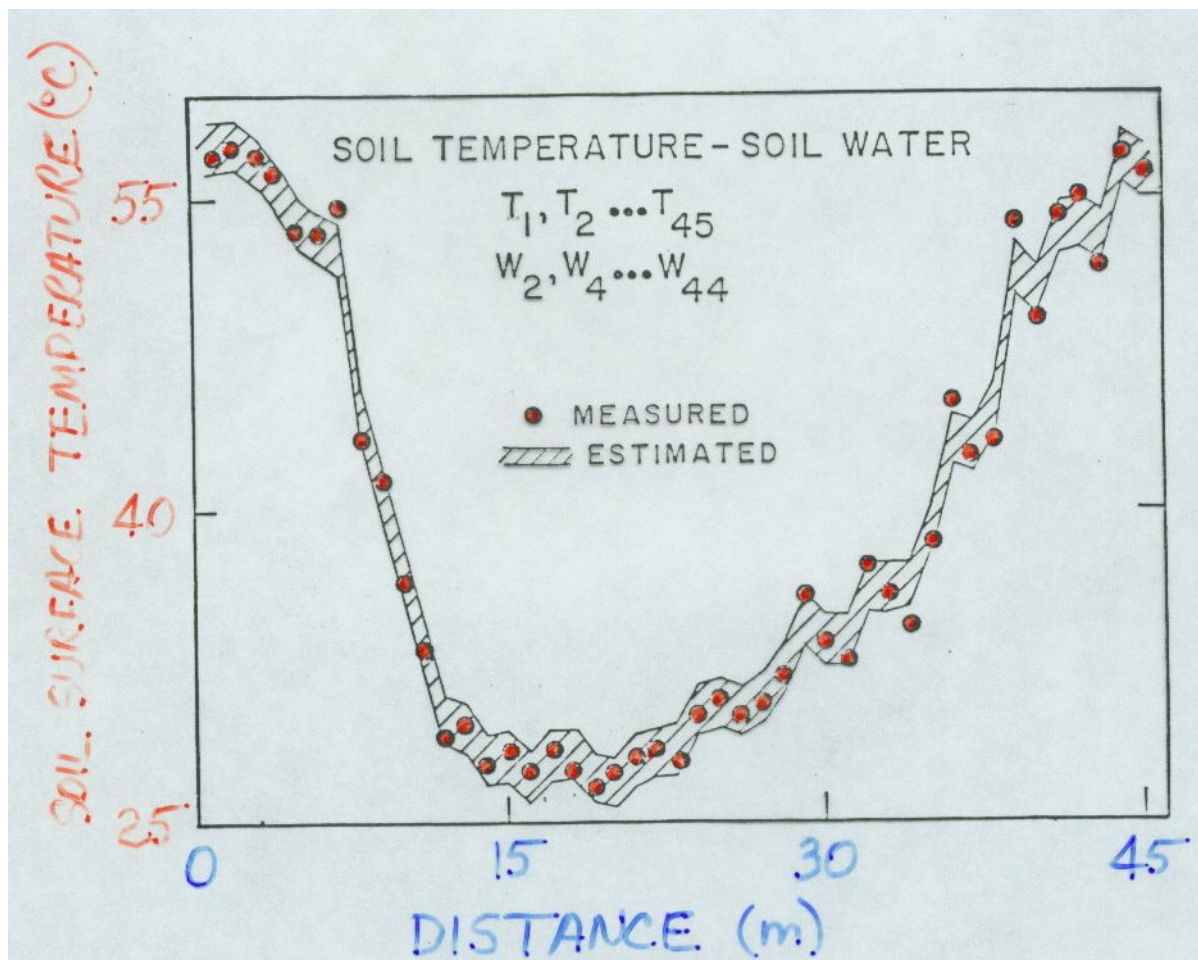 SOIL SURFACE TEMPERATURE (°C)
SOIL TEMPERATURE - SOIL WATER
T1, T2 ••• T45
W2, W4 ••• W44
MEASURED
ESTIMATED
55
40
25
0 15 30 45
DISTANCE (m)